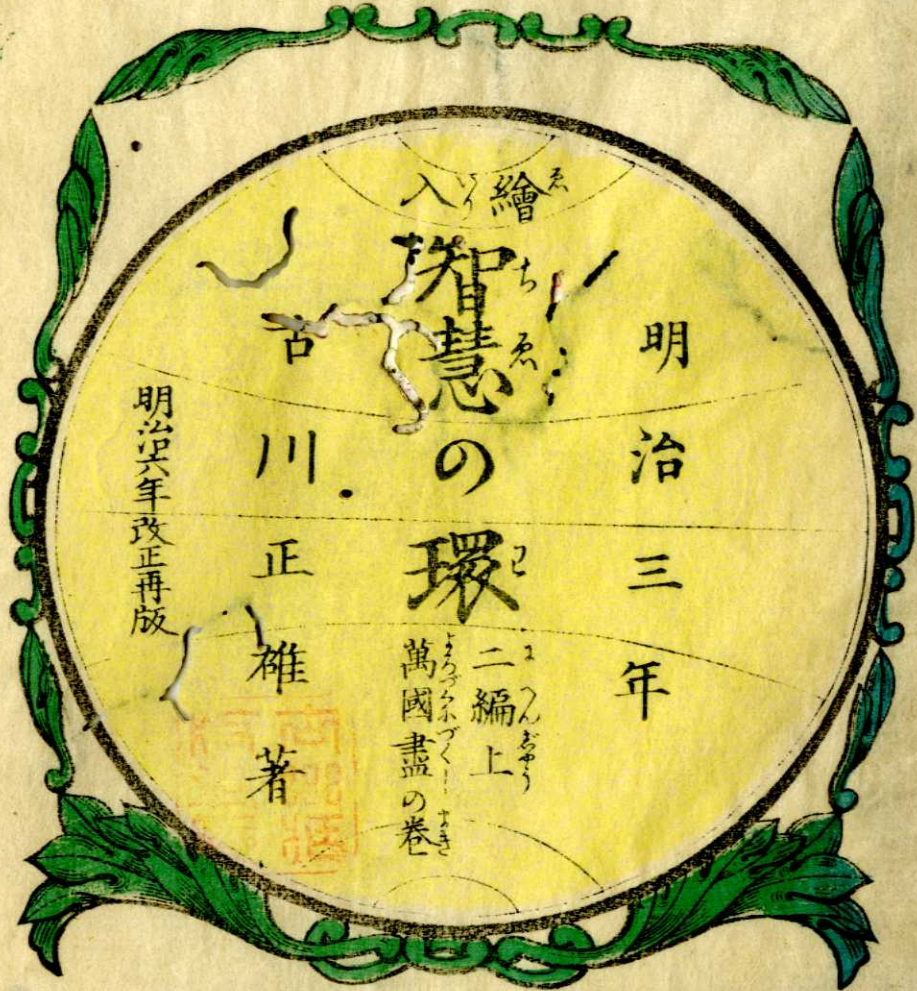 明治三年
繪入
智慧の環
二編上
萬國盡の巻
古川正雄著
明治六年改正再版